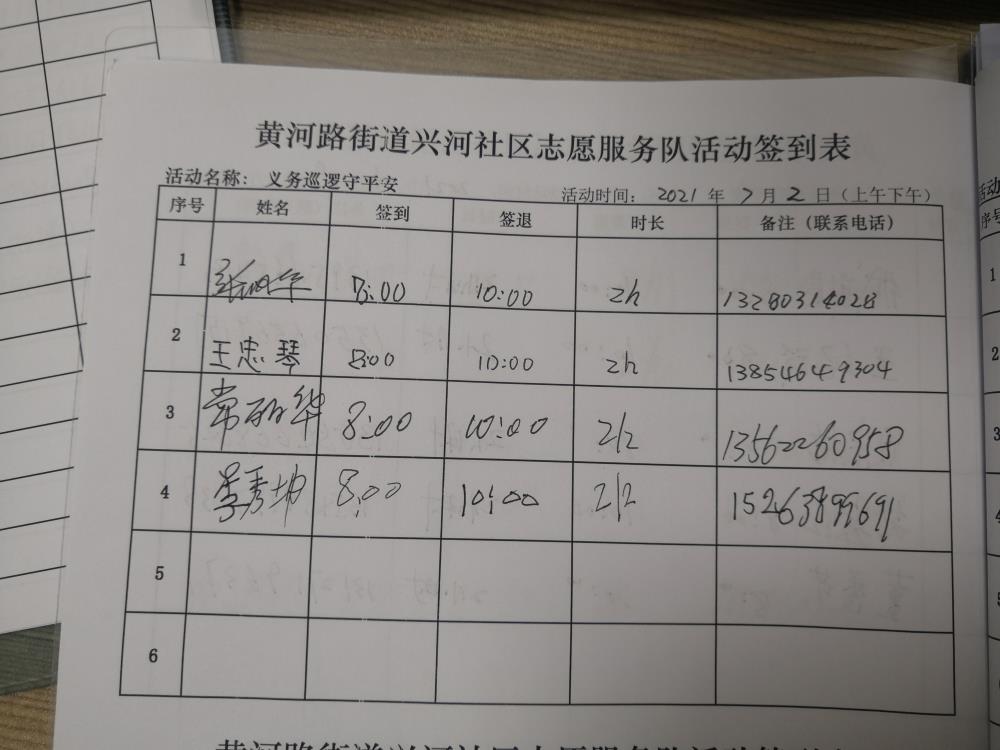 黄河路街道兴河社区志愿服务队活动签到表
活动名称：义务巡逻守平安 活动时间： 2021 年 7 月 2 日（上午下午）
序号 姓名 签到 签退 时长 备注（联系电话）
1 8:00 10:00 2h 13280314028
2 王忠琴 8:00 10:00 2h 13854649304
3 常丽华 8:00 10:00 2h 13562260958
4 8:00 10:00 2h 15263899691
5
6
黄河路街道兴河社区志愿服务队活动签到表